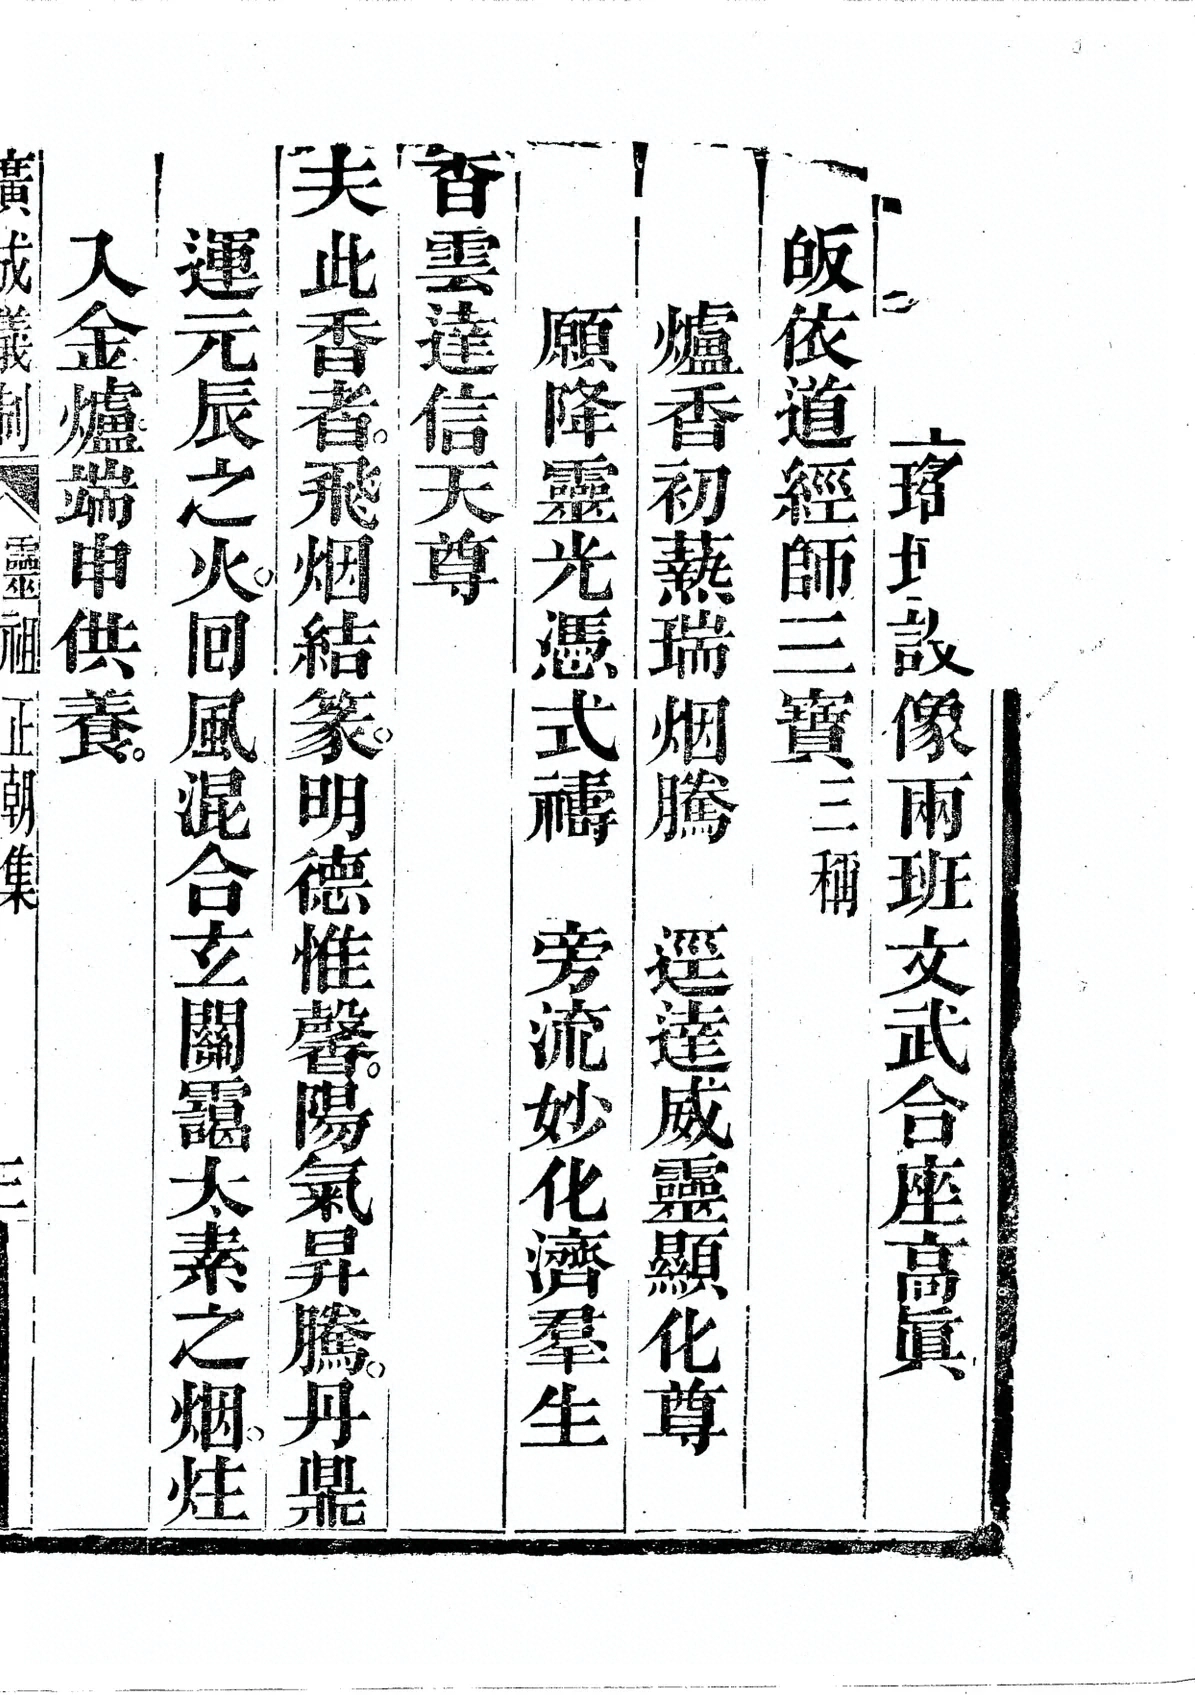 設像兩班文武合座高眞
皈依道經師三寶三稱
爐香初爇瑞烟騰　逕達威靈顯化尊
願降靈光憑式禱　旁流妙化濟羣生
香雲達信天尊
夫此香者。飛烟結篆。明德惟馨。陽氣昇騰。丹鼎
運元辰之火。囘風混合玄關靄太素之烟。炷
入金爐端申供養。
廣成儀制　靈祖正朝集　三